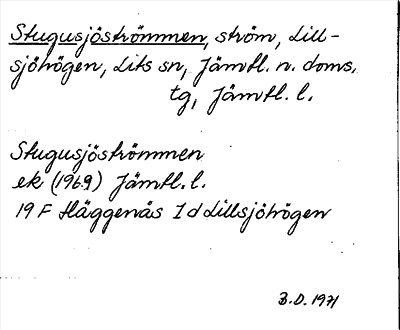 Stugusjöströmmen, ström, Lill-
sjöhögen, Lits sn, Jämtl. n. doms.
tg, Jämtl. l.
Stugusjöströmmen
ek (1969) Jämtl. l.
19 F Häggenås 1 d Lillsjöhögen
B.D. 1971